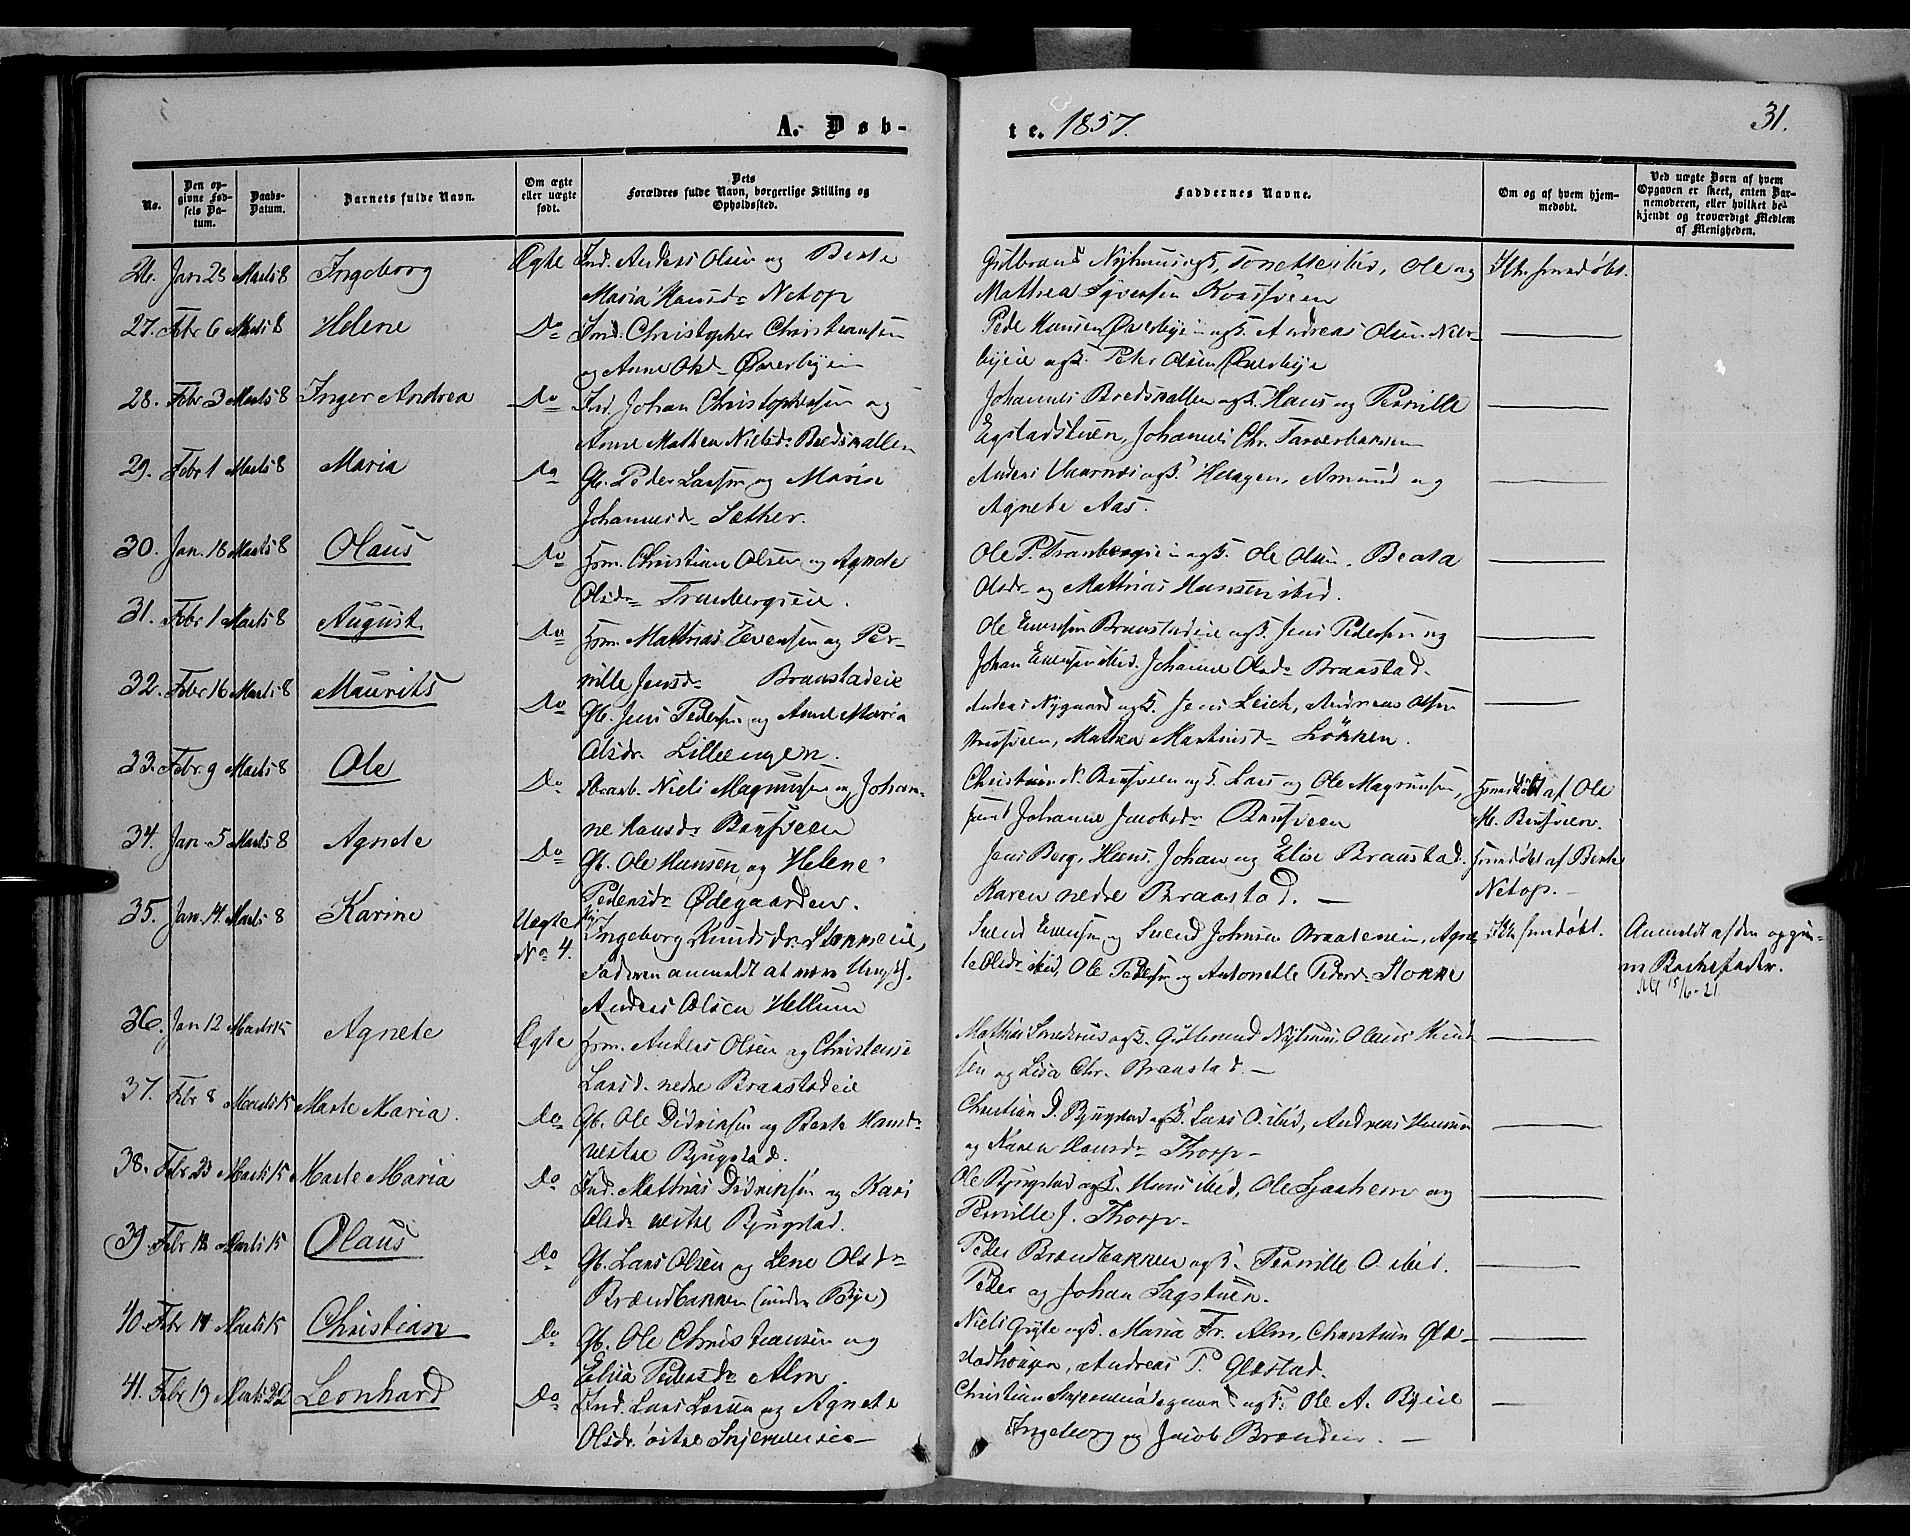 A. Døb-
te. 1857.
31.
No.
Den op-
givne Fød-
sels Da-
tum.
Daabs-
Datum.
Barnets fulde Navn.
Om ægte
eller uægte
født.
Dets
Forældres fulde Navn, borgerlige Stilling og
Opholdssted.
Faddernes Navne.
Om og af hvem hjem-
medøbt.
Ved uægte Børn af hvem
Opgaven er skeet, enten Bar-
nemoderen, eller hvilket be-
kjendt og troværdigt Medlem
af Menigheden.
26. Jan 28 Marts 8 Ingeborg Ægte Ind. Anders Olsen og Berte
Maria Hansdr Netop
Ole og
Mathea Syversen
27. Febr 6 Marts 8 Helene Do Ind. Christopher Christiansen
og Anne Olsdr Øverbyein
Peder Hansen Øverbyein og K. Andreas Olsen
og K. Peter Olsen Øverbye
28. Febr 3 Marts 8 Inger Andrea Do Ind. Johan Christophersen og
Anne Mathea Nielsdr Bredskallen
Johannes Bredskallen og K. Hans og Pernille
Egstadstuen, Johannes Chr.
29. Febr 1 Marts 8 Maria Do Gb. Peder Larsen og Maria
Johannesdr Sæther.
Anders og K. Haagen, Amund og
Agnete Aas.
30. Jan. 18 Marts 8 Olaus Do Hrm. Christian Olsen og Agnete
Olsdr Tranbergseie.
Ole P. Tranbergseie og K. Ole Olsen, Beata
Olsdr og Mathias Hansen ibid.
31. Febr 1 Marts 8 August Do Hrm. Mathias Evensen og Per-
nille Jensdr Braastadeie
Ole Evensen Braastadeie og K. Jens Pedersen og
Johan Evensen ibid. Johanne Olsdr Braastad.
32. Febr 16 Marts 8 Maurits Do Gb. Jens Pedersen og Anne Maria
Olsdr. Lilleengen.
Anders Nygaard og K. Jens Leich, Andreas Olsen
Mathea Martinsdr Løkken.
33. Febr. 9 Marts 8 Ole Do Niels Magnussen og Johan-
ne Hansdr Bensveen
Christian N. Bensveen og K. Lars og Ole Magnussen,
Johanne Jacobsdr Bensveen
Hjemdøbt af Ole
M. Bensveen.
34. Jan 5 Marts 8 Agnete Do Gb. Ole Hansen og Helene
Pedersdr Ødegaarden.
Jens Berg, Hans, Johan og Elise Braastad.
Karen nedre Braastad. —
Hjemdøbt af Berte
Netop. —
35. Jan. 14 Marts 8 Karine Uægte
No 4.
Ingeborg Knudsdr Stokkeeie,
Faderen anmeldt at være Ungk.
Anders Olsen Hellum
Svend Evensen og Svend Johnsen Braateneie, Agne-
te Olsdr ibid, Ole Pedersen og Antonette Pedersdr Stokke
Ikke hjemdøbt.
Anmeldt af den opgiv-
ne Barnefader.
15/6-21
36. Jan 12 Marts 15 Agnete Ægte Hrm. Anders Olsen og Christense
Larsd. nedre Braastadeie
Mathias og K. Gulbrand Olaus Knud-
sen og Lisa Chr. Braastad. —
37. Febr 8 Marts 15 Marte Maria. Do Gb. Ole Didriksen og Berte Hansdr
vestre Bjugstad.
Christian D. Bjugstad og K. Lars O. ibid, Andreas Hansen
og Karen Hansdr Thorp —
38. Febr 23 Marts 15 Marte Maria Do Ind. Mathias Didriksen og Kari
Olsdr vestre Bjugstad.
Ole Bjugstad og K. Hans ibid, Ole Ljaaheim og
Pernille J. Thorp —
39. Febr 18 Marts 15 Olaus Do Gb. Lars Olsen og Lene Olsdr
Brændbakken (under Bye)
Peder Brændbakken og K. Pernille O. ibid.
Peder og Johan Sagstuen.
40. Febr 17 Marts 15 Christian Do Gb. Ole Christiansen og
Elisa Pedersdr Alm.
Niels Gryte og K. Maria Fr. Alm, Christian Glæ-
stadhaugen, Andreas P. Glæstad.
41. Febr 19 Marts 22 Leonhard Do Ind. Lars Larsen og Agnete
Olsdr. østre —
Christian og K. Ole A. Byeie
Ingeborg og Jacob Brænden. —